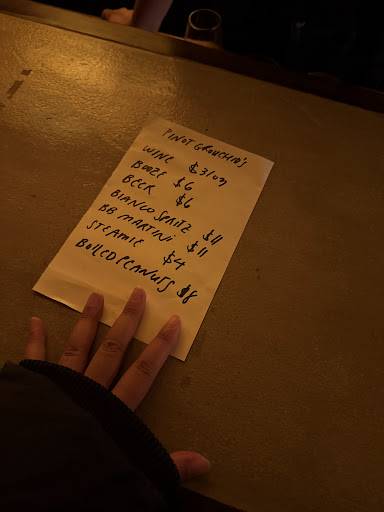 PINOT GROUCHIO'S
WINE $3/OZ
BOOZE $6
BEER $6
BIANCO SPRITZ $11
BB MARTINI $11
STEAMIE $4
BOILED PEANUTS $8